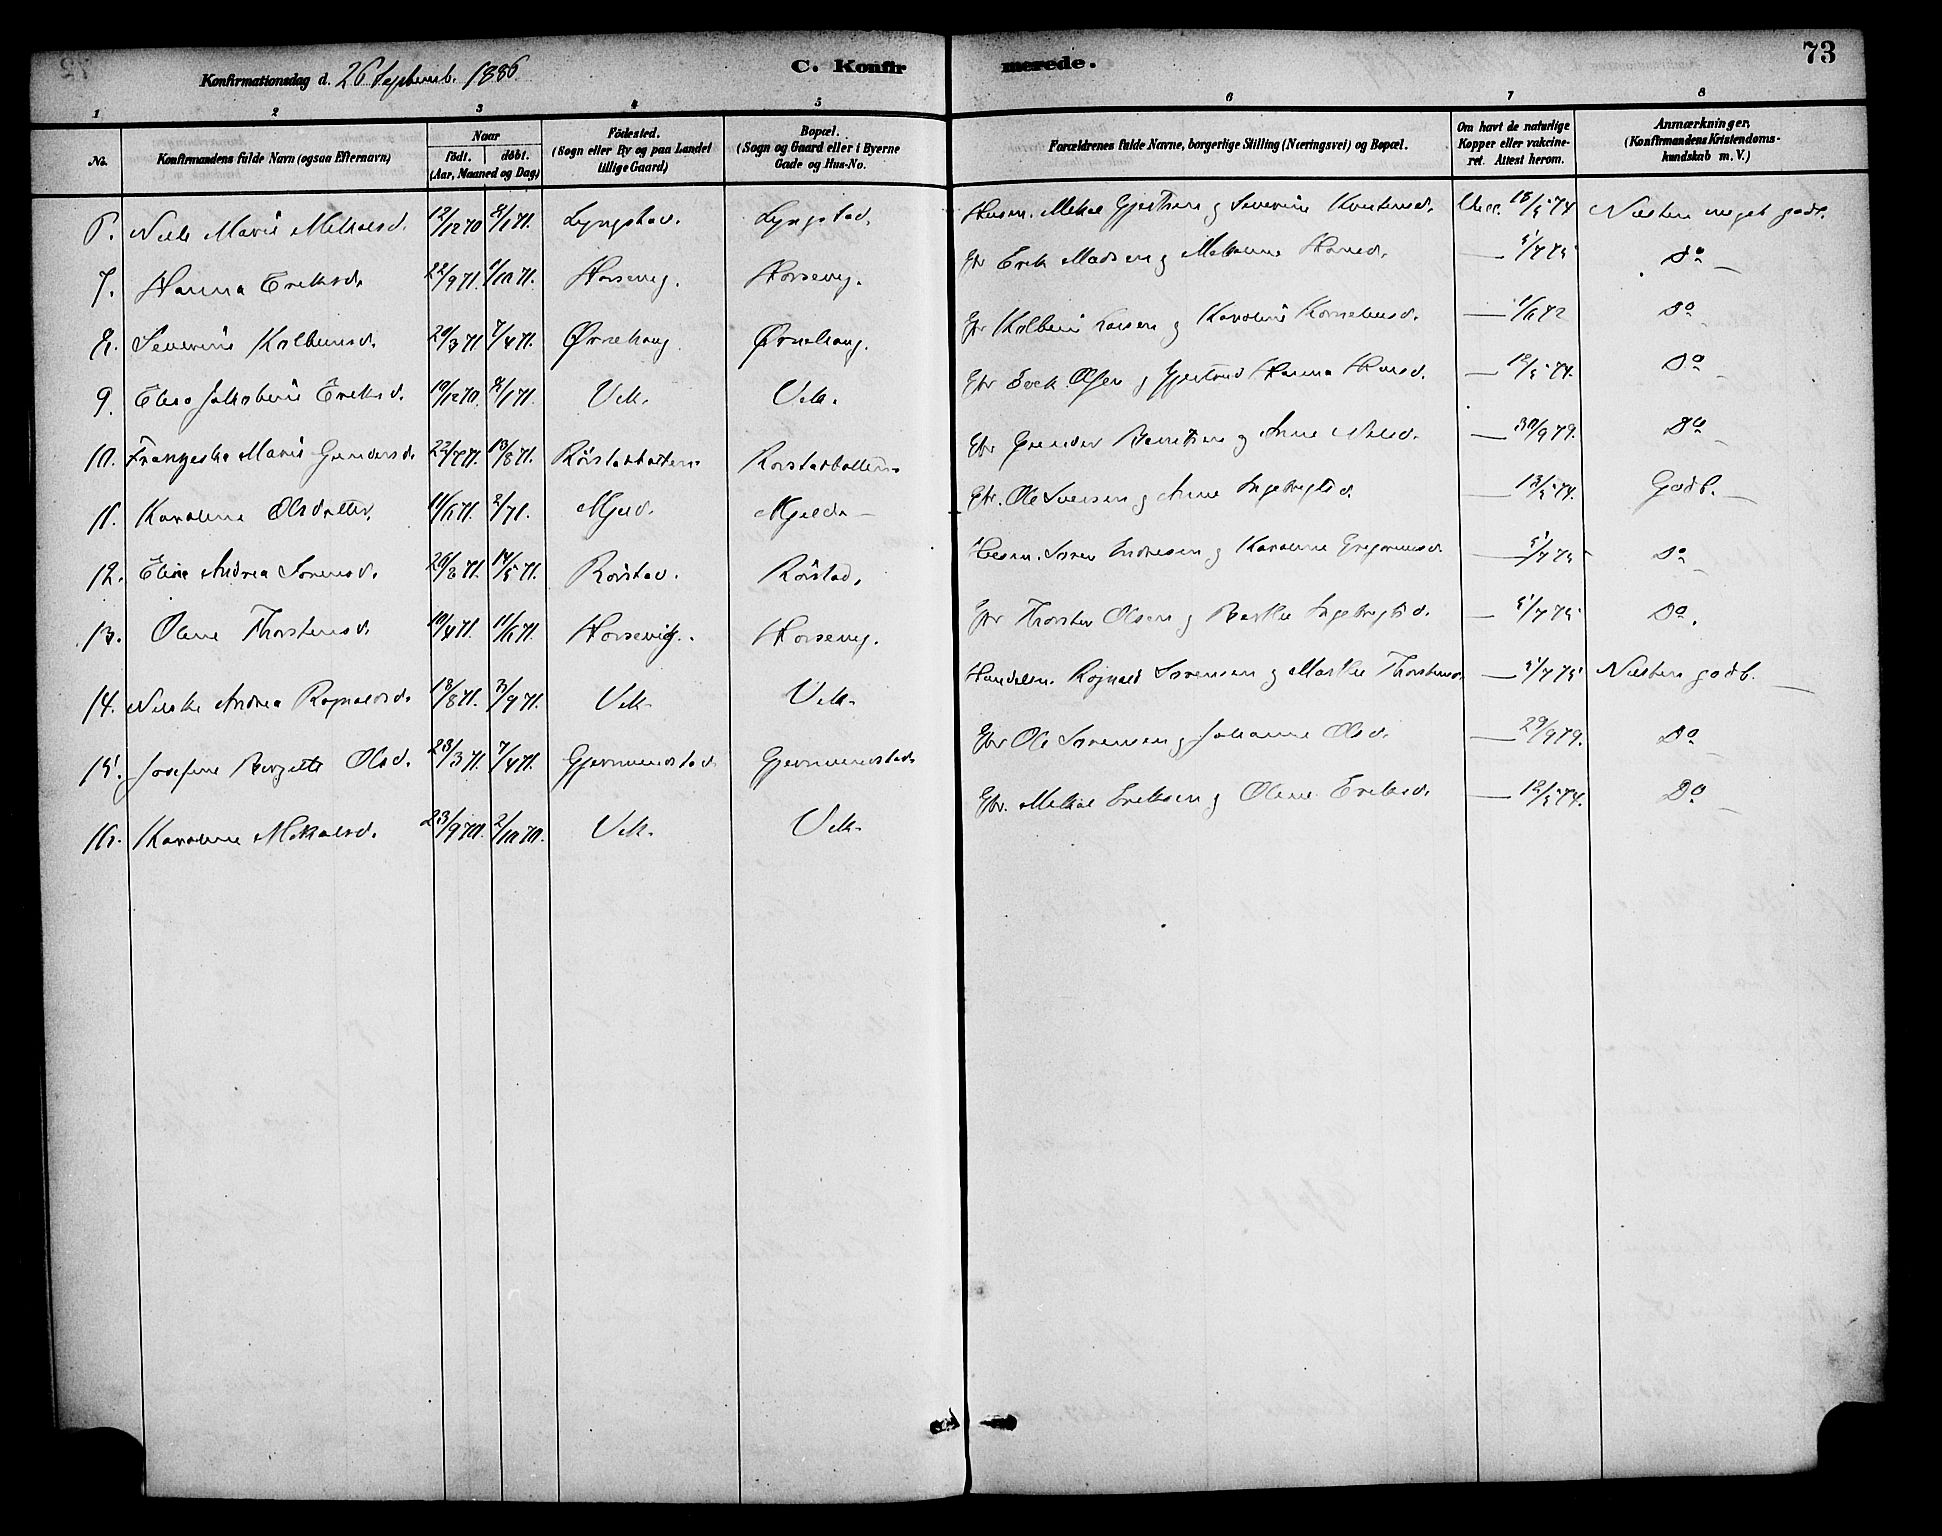 73
Konfirmationsdag d. 26 Septemb. 1886.
C. Konfirmerede.
1 2 3 4 5 6 7 8
No.
Konfirmandens fulde Navn (ogsaa Efternavn)
Naar
født. døbt.
(Aar, Maaned og Dag)
Födested.
(Sogn eller By og paa Landet
tillige Gaard)
Bopæl.
(Sogn og Gaard eller i Byerne
Gade og Hus-No.
Forældrenes fulde Navne, borgerlige Stilling (Næringsvei) og Bopæl.
Om havt de naturlige
Kopper eller vakcine-
ret. Attest herom.
Anmærkninger.
(Konfirmandens Kristendoms-
kundskab m. V.)
6. Marie Mikalsd. 12/12 70 8/1 71. Lyngstad. Lyngstad. Husm. Mikal Gjertsen og Severine 18/5 74 Næsten meget godt.
7. Hanna Eriksd. 22/9 71. 1/10 71. Horsevig. Horsevig. Gbr Erik Madsen og Hansd. — 5/7 75 Do —
8. Severine Kolbensd. 20/3 71 7/4 71. Ørnehaug. Ørnehaug. Gbr Larsen og Karoline Korneliusd. — 1/6 72 Do —
9. Jakobine Eriksd. 10/12 70. 8/1 71. Vik. Vik. Gbr Erik Olsen og Gjertrud Hanna Hansd. — 12/5 74. Do —
10. Franzeska Marie Gundersd. 22/7 71. 13/8 71. Rörstadbotten Rorstadbotten Gbr Gunder Berntsen og Anne Nilsd. — 30/9 79. Do —
11. Karoline Olsdatter. 11/6 71. 2/7 71. Mjeld. Mjelde — Gbr. Ole Iversen og Anne Ingebrigtsd. — 13/5 74. Godt. —
12. Eline Andrea Sörensd. 26/3 71. 14/5 71. Rörstad. Rörstad. Husm. Sören Andresen og Karoline Gregoriusd. — 5/7 75 Do —
13. Oline Thorstensd. 10/4 71. 11/6 71. Horsevig. Horsevig. Gbr Thorsten Olsen og Ingebrigtsd. — 5/7 75 Do.
14. Andrea Ragnvalds. 18/8 71. 3/9 71. Vik. Vik. Handelsm. Sörensen og Thorstensd. — 5/7 75 Næsten godt. —
15. Josefine Bergitte Olsd. 23/3 71. 7/4 71. Gjermundstad Gjermundstad Gbr Ole Sörensen og Johanna Olsd. — 29/9 79. Do —
16. Karoline Mikalsd. 23/9 70. 2/10 70. Vik. Vik. Gbr. Mikal Eriksen og Oline Eriksd. — 12/5 74. Do —